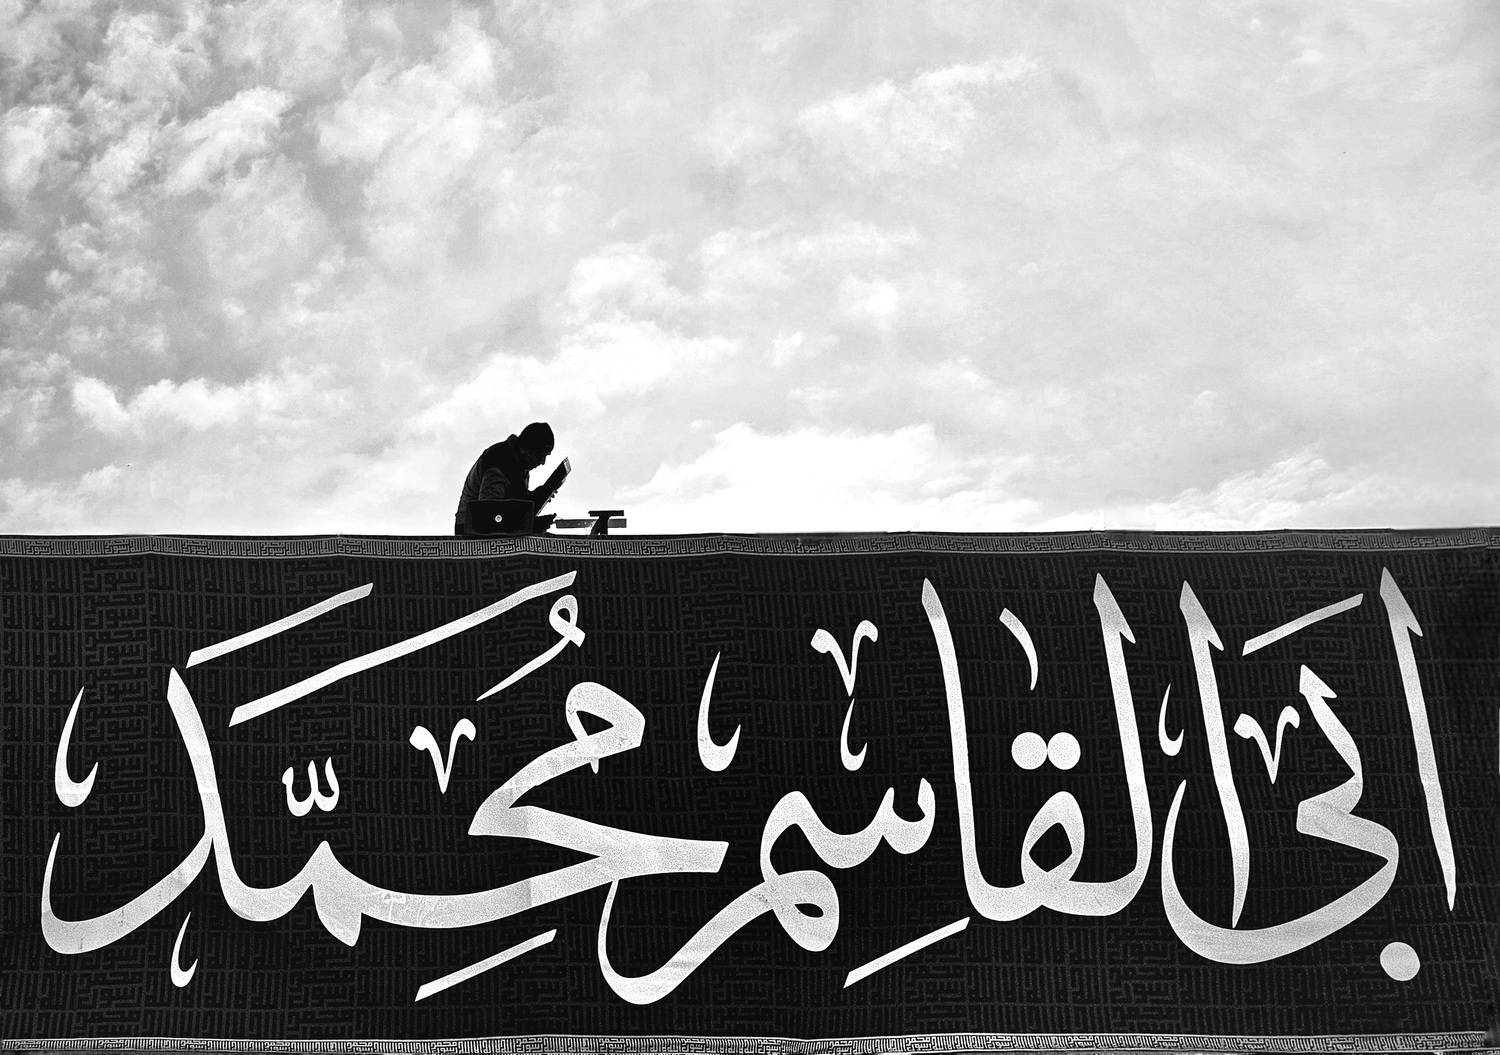 اَبی القاسِم مُحَمَّدَ